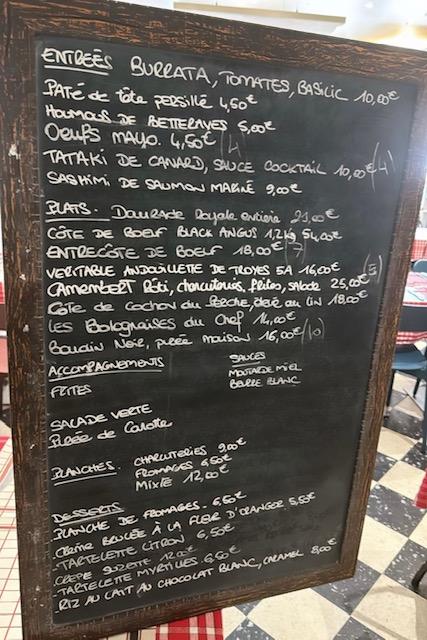 ENTREÉS BURRATA, TOMATES, BASILIC 10,00€
PATÉ de tête persillé 4,50€
HOUMOUS DE BETTERAVES 5,00€
Oeufs MAYO. 4,50€ (4)
TATAKI DE CANARD, SAUCE COCKTAIL 10,00€ (4)
SASHIMI DE SAUMON MARINÉ 9,00€
PLATS. Daurade Royale entière 21,00€
CÔTE DE BOEUF BLACK ANGUS 1,2kg 54,00€
ENTRECÔTE DE BOEUF 18,00€ (7)
VERITABLE ANDOUILLETTE DE TROYES 5A 16,00€
CAMEMBERT Rôti, charcuteries, frites, salade 25,00€ (5)
Côte de Cochon du Perche, élevé au lin 18,00€
Les Bolognaises du Chef 14,00€
Boudin Noir, purée maison 16,00€ (10)
ACCOMPAGNEMENTS SAUCES
FRITES MOUTARDE MIEL
BEURRE BLANC
SALADE VERTE
Purée de Carotte
PLANCHES. CHARCUTERIES 9,00€
FROMAGES 6,50€
MIXTE 12,00€
DESSERTS
PLANCHE DE FROMAGES. 6,50€
CRÈME BRULÉE À LA FLEUR D'ORANGER 5,50€
TARTELETTE CITRON 6,50€
CREPE SUZETTE 12,00€
TARTELETTE MYRTILLES 6,50€
RIZ AU LAIT AU CHOCOLAT BLANC, CARAMEL 8,00€